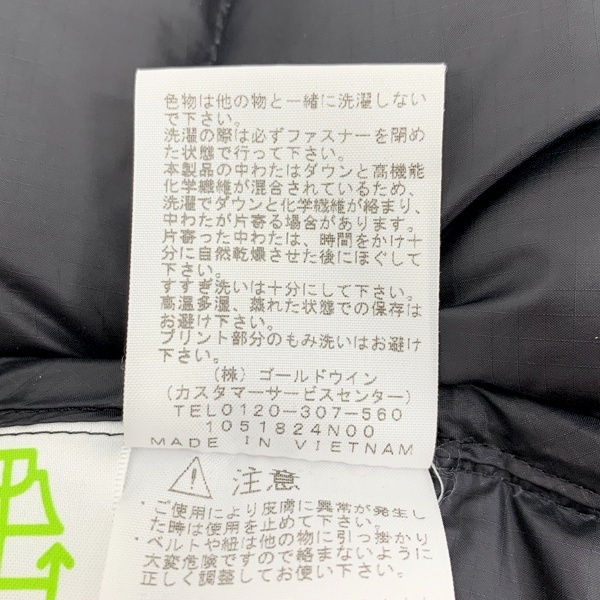 色物は他の物と一緒に洗濯しない
で下さい。
洗濯の際は必ずファスナーを閉め
た状態で行って下さい。
本製品の中わたはダウンと高機能
化学繊維が混合されているため、
洗濯でダウンと化学繊維が絡まり、
中わたが片寄る場合があります。
片寄った中わたは、時間をかけ十
分に自然乾燥させた後にほぐして
下さい。
すすぎ洗いは十分にして下さい。
高温多湿、蒸れた状態での保存は
お避け下さい。
プリント部分のもみ洗いはお避け
下さい。
(株)ゴールドウイン
(カスタマーサービスセンター)
TEL0120-307-560
1051824N00
MADE IN VIETNAM
注意
・ご使用により皮膚に異常が発生し
た時は使用を止めて下さい。
・ベルトや紐は他の物に引っ掛かり
大変危険ですので絡まないように
正しく調整してお使い下さい。